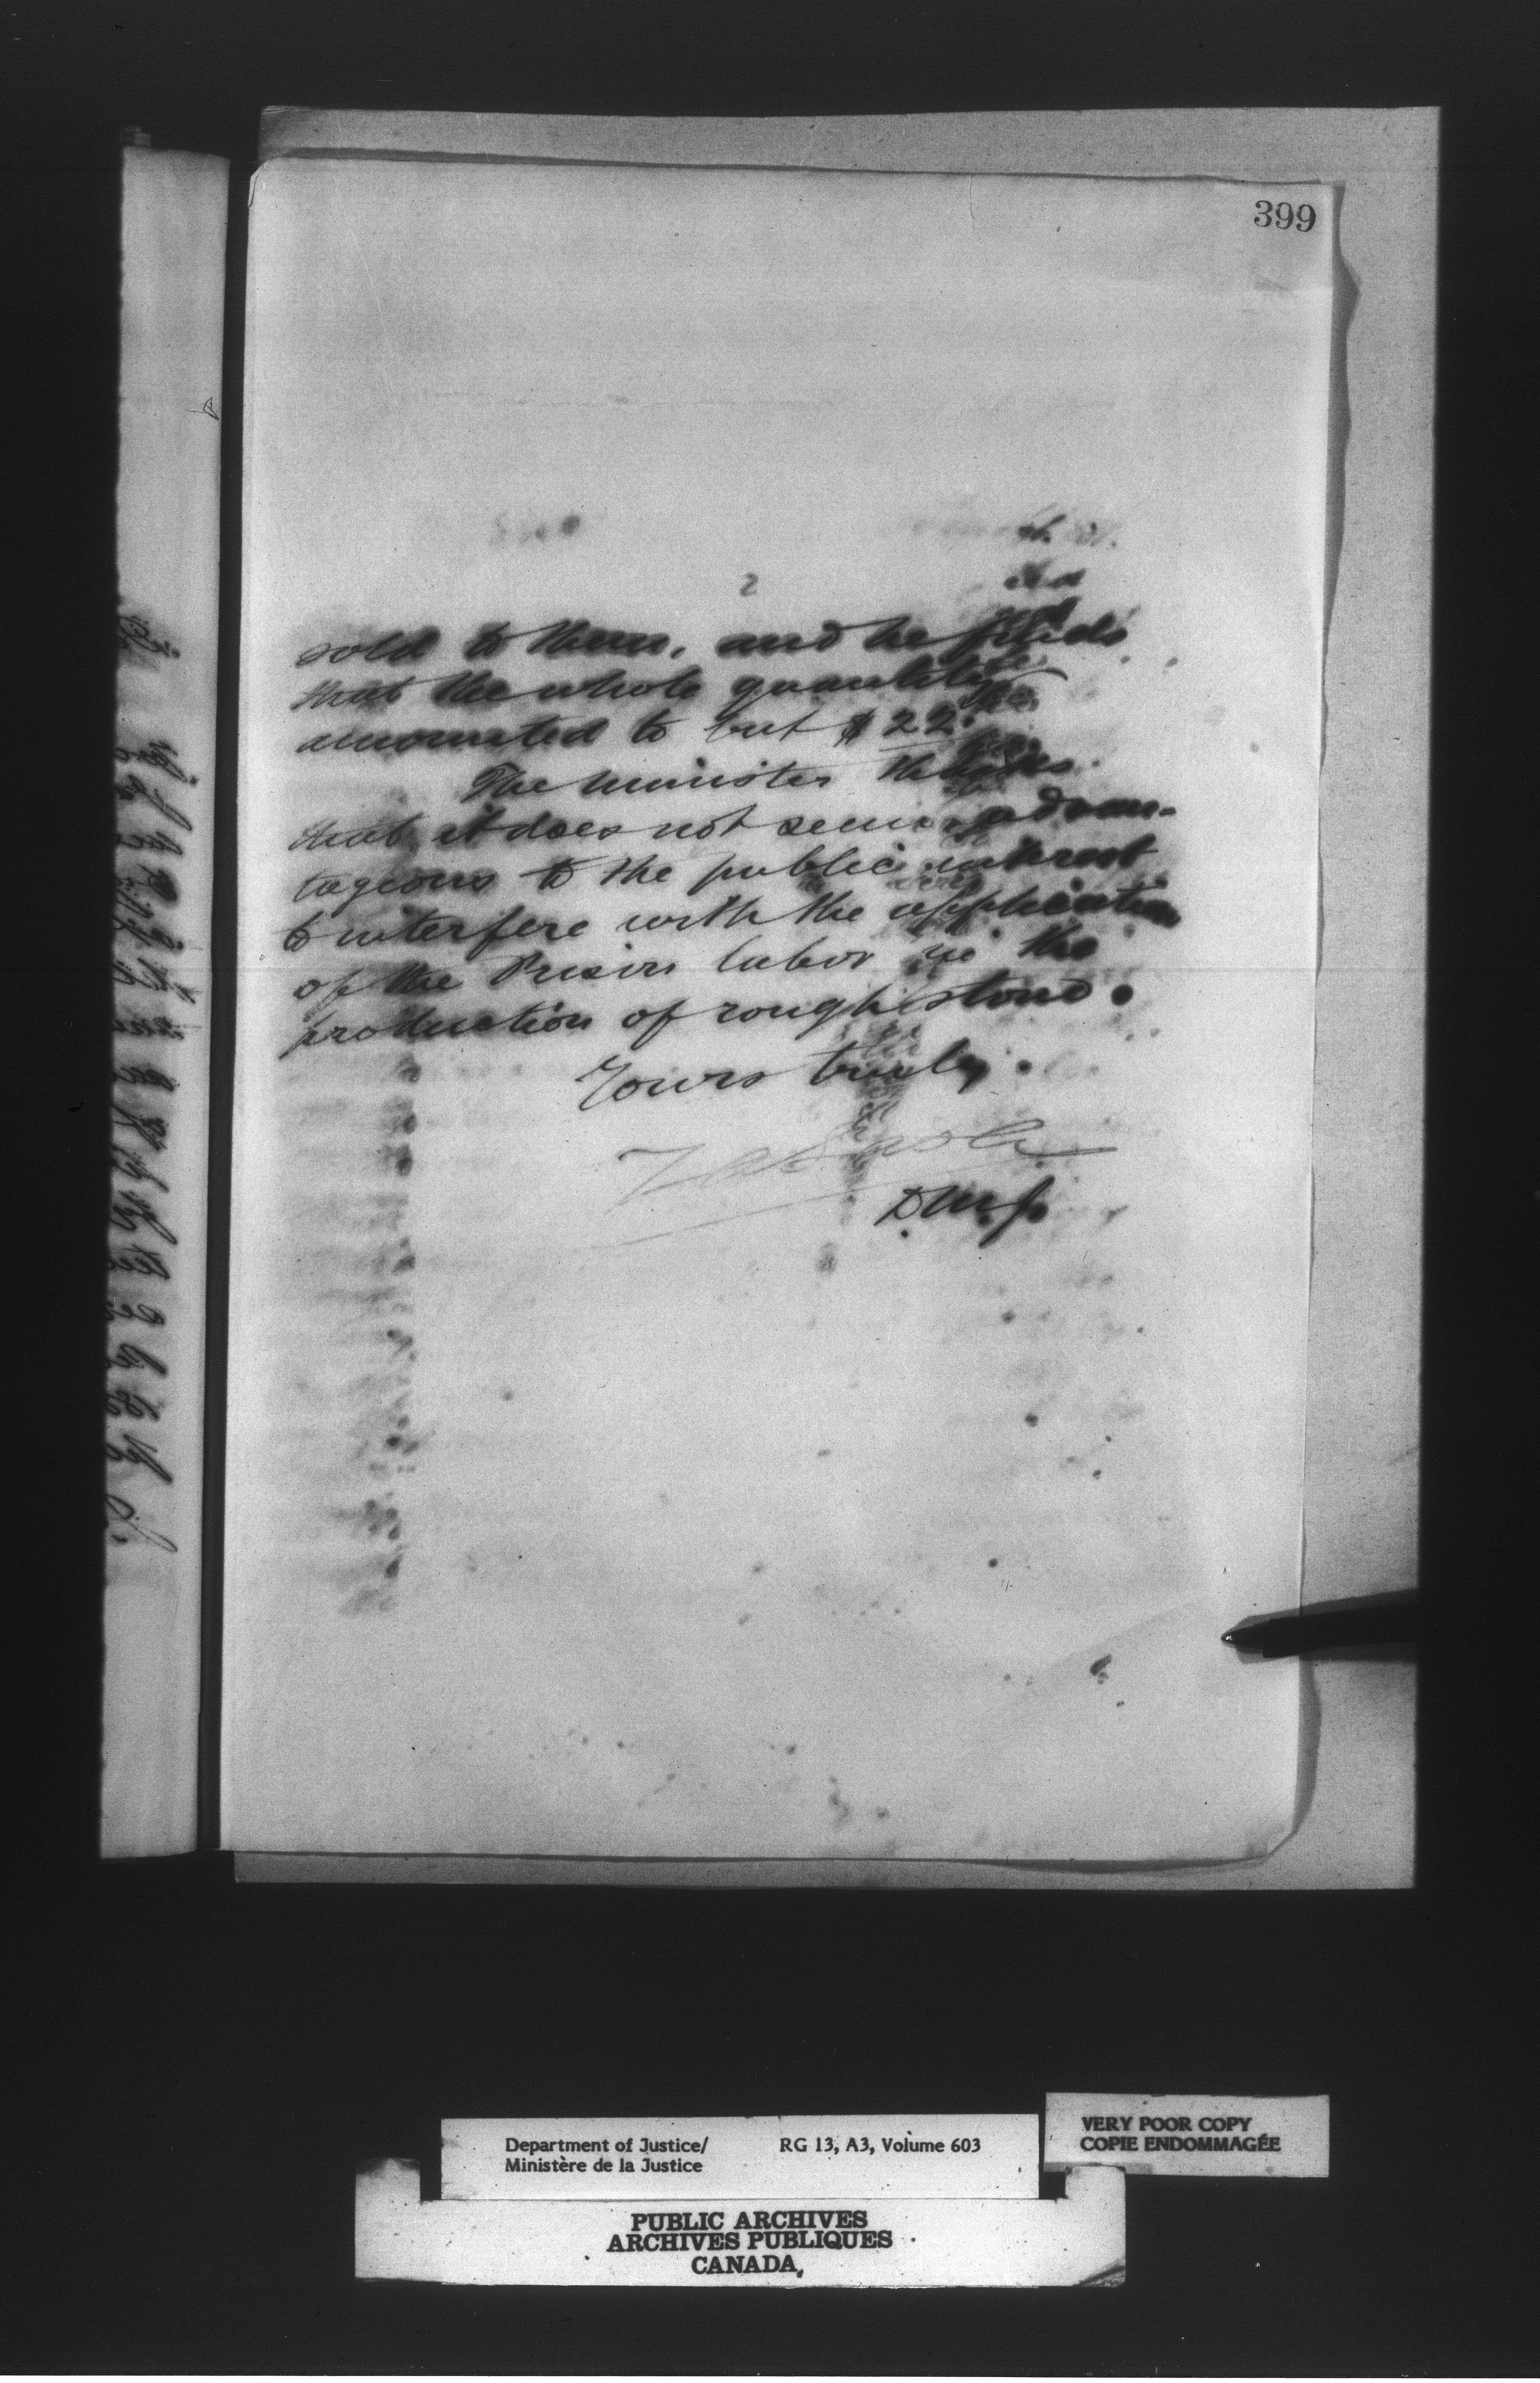 399
2
sold to them, and he finds
that the whole quantity
amounted to but $22.
The Minister thinks
that it does not seem advan-
tageous to the public interest
to interfere with the application
of the Prison labor in the
production of rough stone.
Yours truly
DMJ.
Department of Justice/ RG 13, A3, Volume 603
Ministère de la Justice
VERY POOR COPY
COPIE ENDOMMAGÉE
PUBLIC ARCHIVES
ARCHIVES PUBLIQUES
CANADA